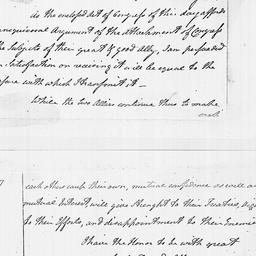 As the enclosed Act of Congress of this day affords
unequivocal Argument of the Attachment of Congress
the Subjects of their great & good Ally, I am persuaded
Satisfaction on receiving it will be equal to the
with which I transmit it —
While the two Allies continue thus to make
each
each others cause their own, mutual confidence as well as
mutual Interest will give strength to their Treaties,
to their Efforts, and disappointment to their Enemies
I have the Honor to be with great